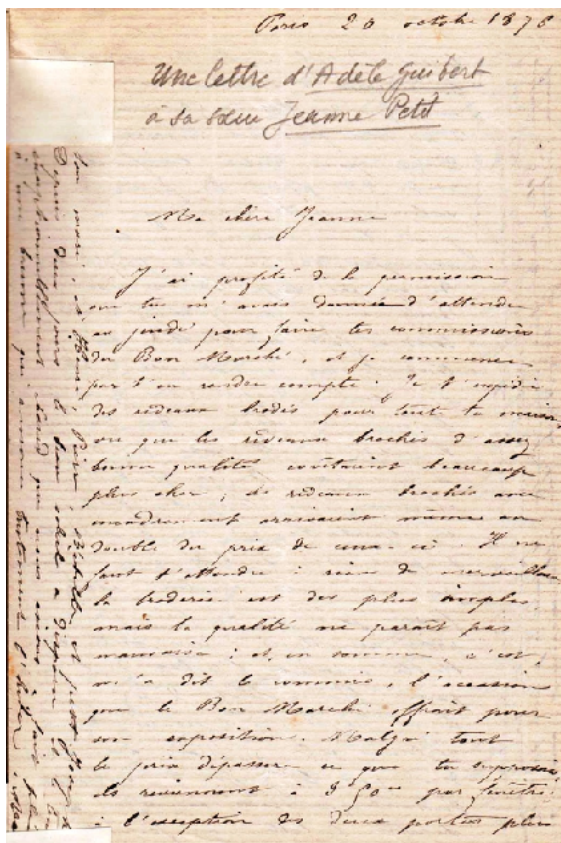 Paris 20 octobre 1878
Une lettre d'Adèle Guibert
à sa sœur Jeanne Petit
Ma chère Jeanne
J'ai profité de la permission
que tu m'avais donnée d'attendre
au jeudi pour faire tes commissions
du Bon Marché, et je commence
par t'en rendre compte. Je t'expédie
des rideaux brodés pour toute ta maison
vu que les rideaux brochés d'assez
bonne qualité coûtaient beaucoup
plus cher, des rideaux brochés avec
encadrement arrivaient même au
double du prix de ceux-ci. Il ne
faut t'attendre à rien de merveilleux
la broderie est des plus simples,
mais la qualité ne paraît pas
mauvaise ; et, en somme, c'est,
m'a dit le commis, l'occasion
que le Bon Marché offrait pour
son exposition. Malgré tout
le prix dépassera ce que tu supposais
ils reviennent à par fenêtre,
à l'exception des deux portes plus
mari
Depuis deux jours le soleil a
exceptionnellement chaud que nous avions